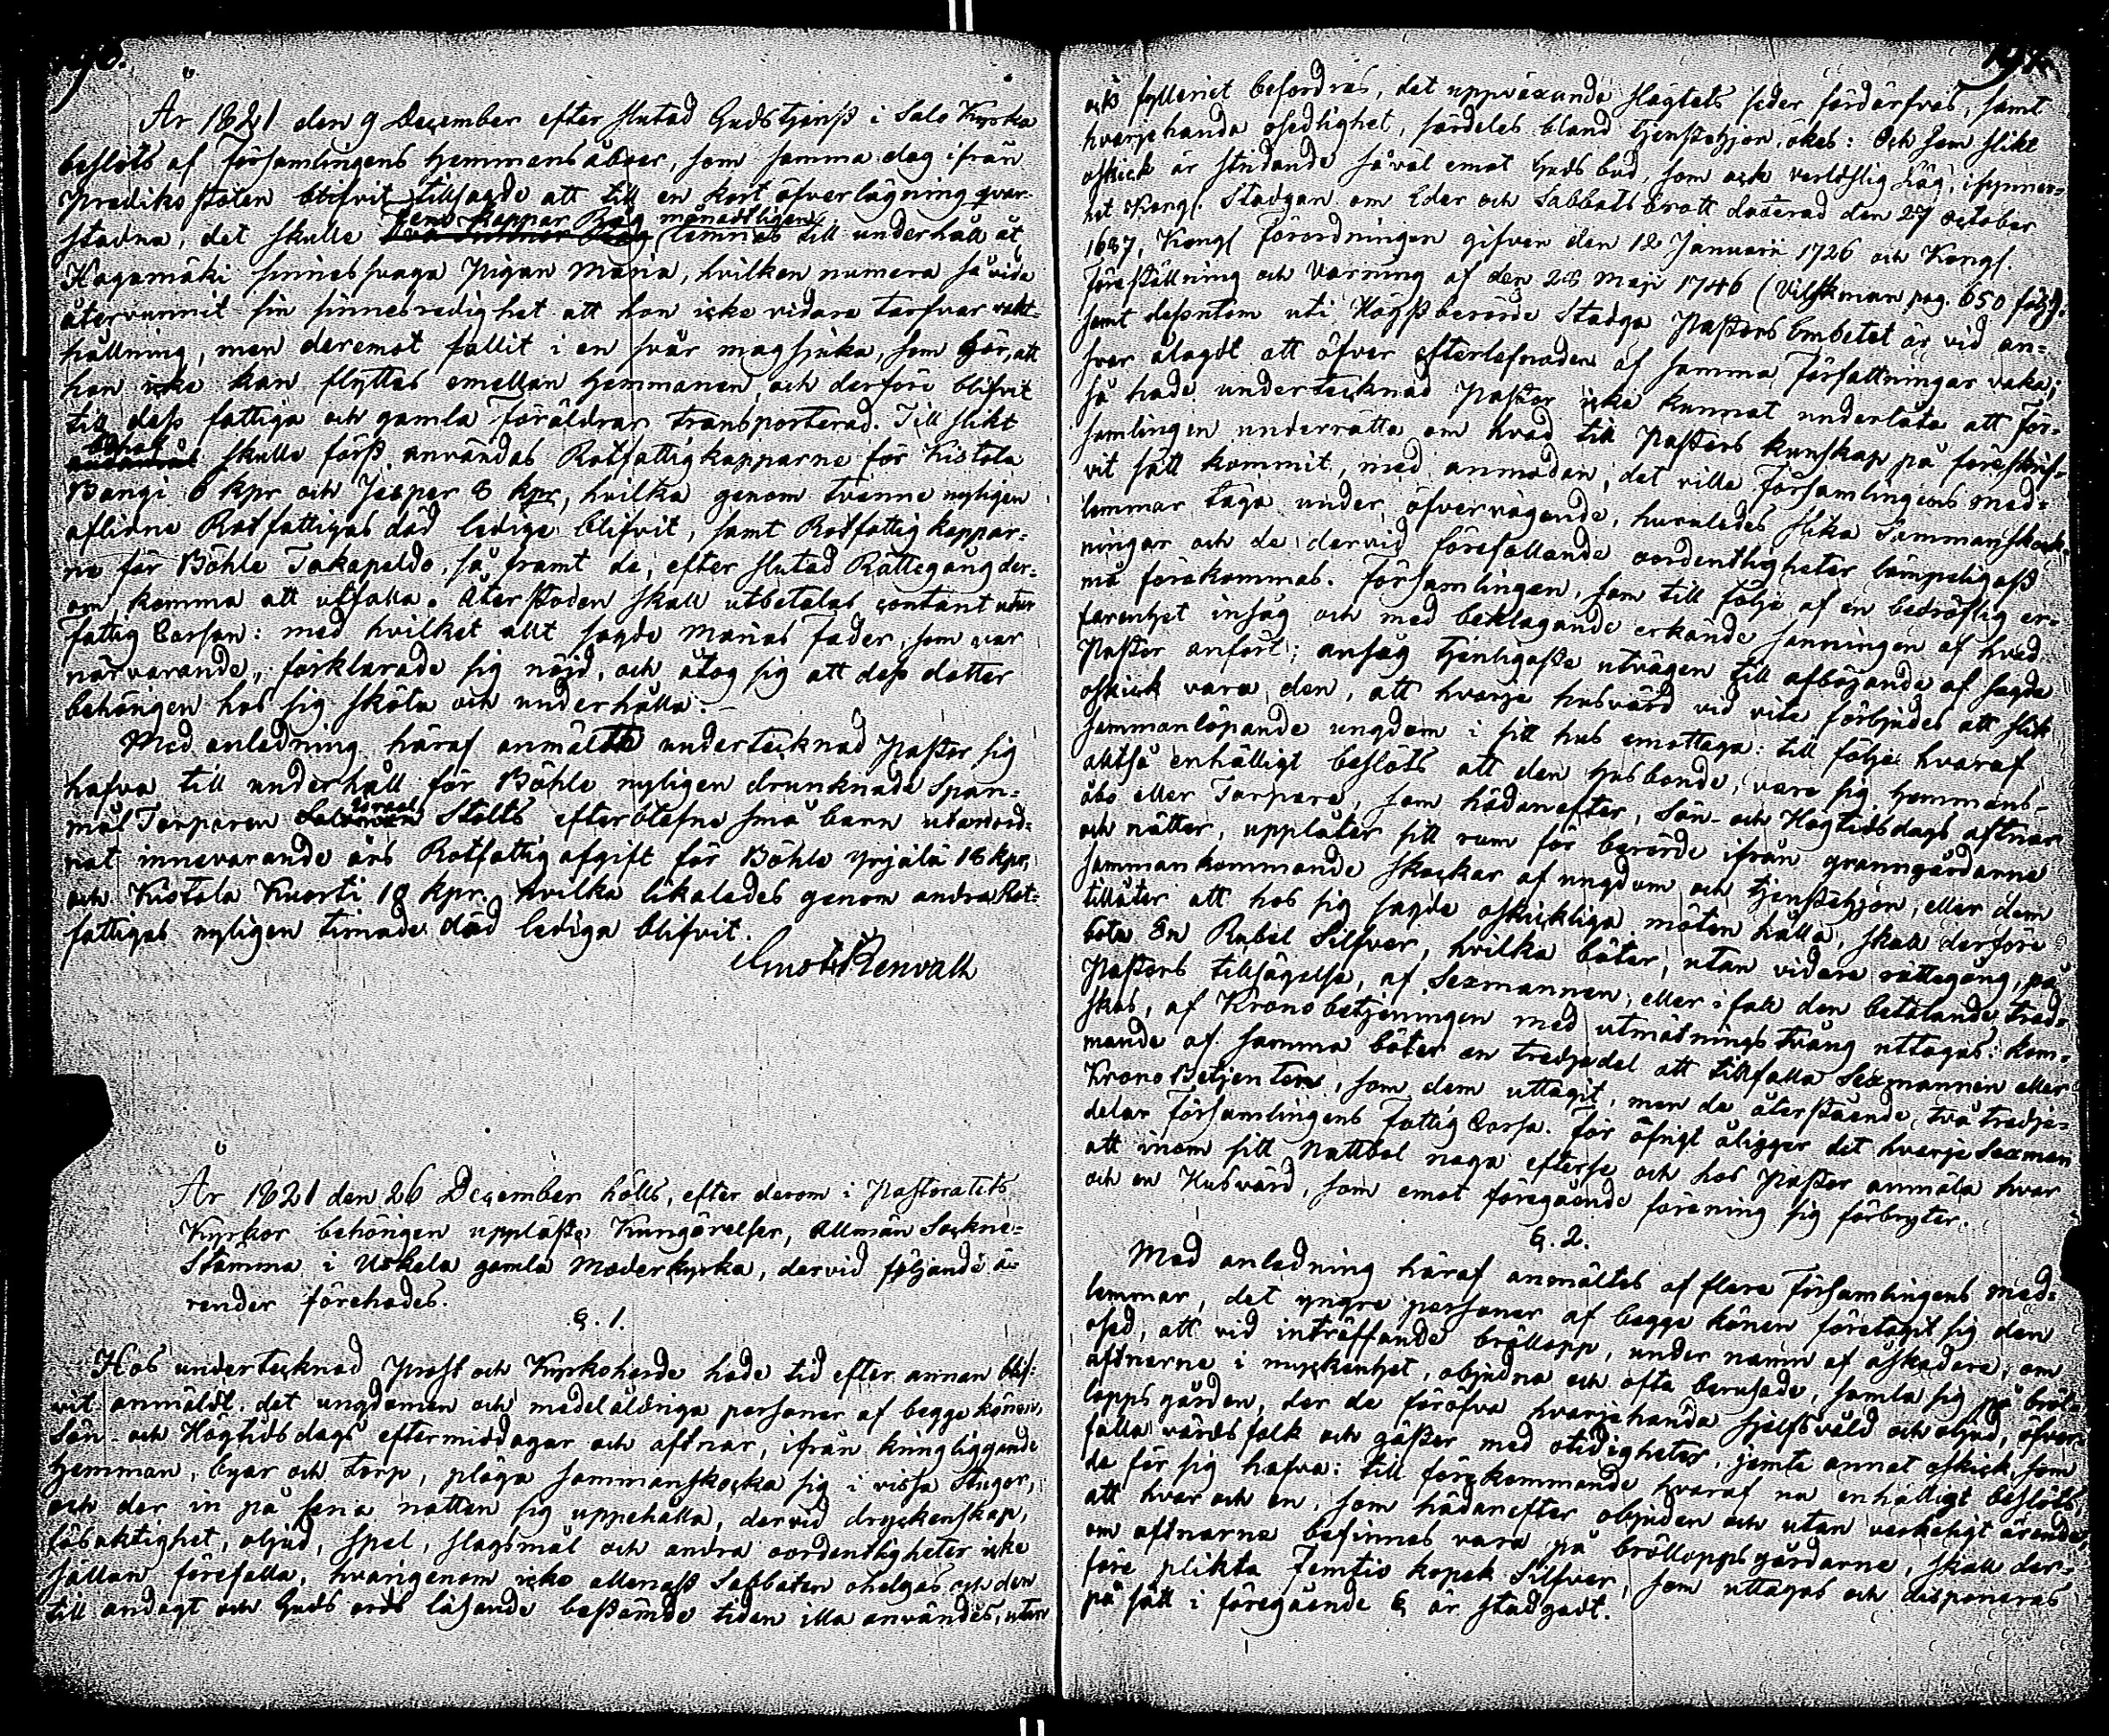 År 1821 den 9 December efter slutad Gudstjenst i Salo Kyrka
beslöts af Församlingens Hemmansåboer, som samma dag ifrån
Prediko stolen blifvit tillsagde att till en kort öfverläggning qvar-
stadna, det skulle Fem kappar Råg månadtligen lemnas till underhåll åt
Hagamäki sinnessvaga Pigan Maria, hvilken numera så vida
återvunnit sin sinnesredighet att hon icke vidare tarfvar vakt-
hållning, men deremot fallit i en svår magsjuka, som gör, att
hon icke kan flyttas emellan Hemmanen, och derföre blifvit
till dess fattiga och gamla Föräldrar transporterad. Till slikt
behof skulle först användas Rotfattigkapparne för Kistola
Bangi 6 kpr och Jesper 8 kpr, hvilka genom tvenne nyligen
aflidne Rotfattigas död ledige blifvit, samt Rotfattig kappar-
ne för Böhle Takapeldo, så framt de, efter slutad Rättegång der-
om, komma att utfalla. Återstoden skall utbetalas contant utur
fattig Cassan: med hvilket allt sagde Marias fader, som var
närvarande, förklarade sig nöjd, och åtog sig att dess dotter
behörigen hos sig sköta och underhålla.
Med anledning häraf anmälte undertecknad Pastor sig
hafva till underhåll för Böhle nyligen drunknade Span-
mål Torparen Israel Stolts efterblefne små barn utanord-
nat innevarande års Rotfattig afgift för Böhle Yrjälä 18 kpr,
och Kistola Kuorti 18 kpr. hvilka likaledes genom andra Rot-
fattigas nyligen timade död lediga blifvit.
Gust. Renvall
År 1821 den 26 December hölls, efter derom i Pastoratets
Kyrkor behörigen uppläste Kungörelser, Allmän Sockne-
Stämma i Uskela gamla Moderkyrka, dervid följande ä-
render förehades.
§. 1.
Hos undertecknad Prost och Kyrkoherde hade tid efter annan blif-
vit anmäldt, det ungdomen och medelåldriga personer af begge könen,
Sön- och Högtidsdags eftermiddagar och aftnar, ifrån kringliggande
Hemman, byar och torp, pläga sammanskocka sig i vissa Stugor,
och der in på sena natten sig uppehålla, dervid dryckenskap,
lösaktighet, oljud, spel, slagsmål och andra oordentligheter icke
sällan förefalla, hvarigenom icke allenast Sabbaten ohelgas och den
till andagt och Guds ords läsande bestämde tiden illa användes, utan
ock fylleriet befordras, det uppväxande slägtets seder fördärfvas, samt
hvarjehanda osedlighet, särdeles bland tjenstehjon, ökes: Och som slikt
oskick är stridande såväl emot Guds bud, som ock verldslig Lag, isynner-
het Kongl. Stadgan om Eder och Sabbats brott daterad den 27 October
1687, Kongl Förordningen gifven den 12 Januarii 1726 och Kongl.
Föreställning och Varning af den 28 Maji 1746 (Vilskman pag. 650 följ.).
samt dessutom uti Högstberörde Stadga Pastors Embetet är vid an-
svar ålagdt att öfver efterlefnaden af samma Författningar vaka;
så hade undertecknad Pastor icke kunnat underlåta att För-
samlingen underrätta om hvad till Pastors kunskap på föreskrif-
vit sätt kommit, med anmodan, det ville Församlingens med-
lemmar taga under öfvervägande, huruledes slika Sammanskock-
ningar och de dervid förefallande oordentligheter lämpeligast
må förekommas. Församlingen, som till följe af en bedröflig er-
farenhet insåg och med beklagande erkände sanningen af hvad
Pastor anfört; ansåg tjenligaste utvägen till afböjande af sagde
oskick vara den, att hvarje husvärd vid vite förbjudes att slik
sammanlöpande ungdom i sitt hus emottaga: till följe hvaraf
alltså enhälligt beslöts att den Husbonde, vare sig Hemmans-
åbo eller Torpare, som hädanefter, Sön- och Högtidsdags aftnar
och nätter, upplåter sitt rum för berörde ifrån granngårdarne
sammankommande skockar af ungdom och tjenstehjon, eller dem
tillåter att hos sig sagde oskickliga möten hålla, skall derföre
bota En Rubel Silfver, hvilka böter, utan vidare rättegång, på
Pastors tillsägelse, af Sexmannen, eller i fall den betalande tred-
skas, af Kronobetjeningen med utmätnings tvång uttagas: kom-
mande af samma böter en tredjedel att tillfalla Sexmannen eller
Krono Betjenten, som dem uttagit, men de återstående två tredje-
delar Församlingens Fattig Cassa. För öfrigt åligger det hvarje Sexman
att inom sitt Nattbol noga efterse och hos Pastor anmäla hvar
och en Husvärd, som emot föregående förening sig förbryter.
§. 2.
Med anledning häraf anmältes af flere Församlingens med-
lemmar, det yngre personer af begge könen företagit sig den
osed, att vid inträffande bröllopp, under namn af åskådare, om
aftnarne i myckenhet, objudna och ofta berusade, samla sig på bröl-
lopps gården, der de föröfva hvarjehanda sjelfsvåld och oljud, öfver-
falla värdsfolk och gäster med otidigheter, jemte annat oskick, som
de för sig hafva: till förekommande hvaraf nu enhälligt beslöts
att hvar och en, som hädanefter objuden och utan verkeligt ärende,
om aftnarne befinnes vara på bröllopps gårdarne, skall der-
före plikta Femtio kopek Silfver, som uttagas och disponeras
på sätt i föregående § är stadgadt.